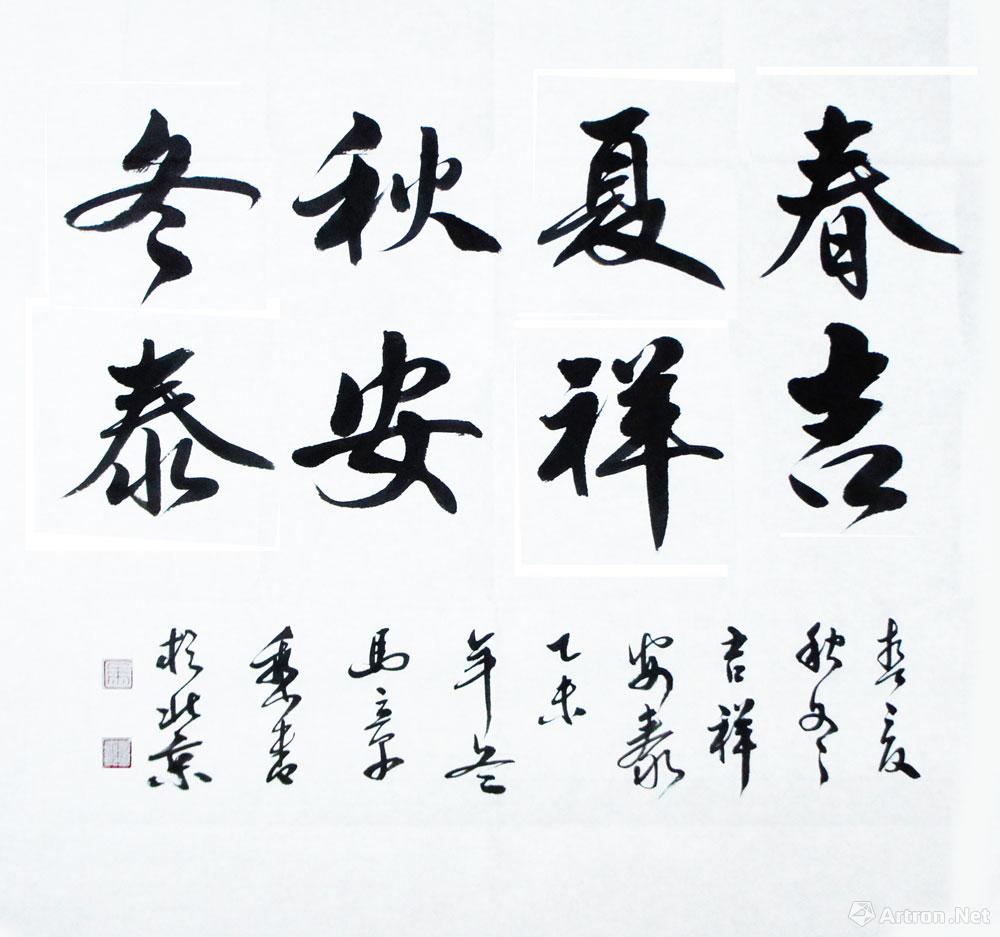 春夏秋冬
吉祥安泰
春夏
秋冬
吉祥
安泰
乙未
年冬
馬章
乘書
於北京
Artron.Net